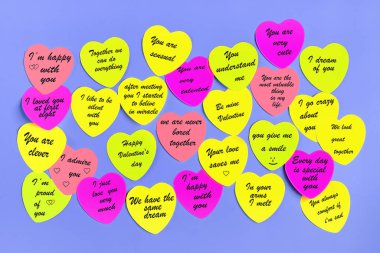 I'm happy
with
you
Together we
can do
everything
You are
sensual
You
understand
me
You are
very
cute
I dream of
you
I loved you
at first
sight
I like to be
silent
with
you
after meeting
you I started
to believe
in miracle
You are
very
talented
Be mine
Valentine
You are the
most valuable
thing
in my life.
I go crazy
about
you
We look
great
together
You are
clever
I admire
you
Happy
Valentine's
day
we are
never
bored
together
Your love
saves me
you give me
a smile
Every day
is special
with
you
I'm
proud of
you
I just
love you
very
much
We have the
same
dream
I'm
happy
with
you
In your
arms
I melt
You always
comfort if
I'm sad